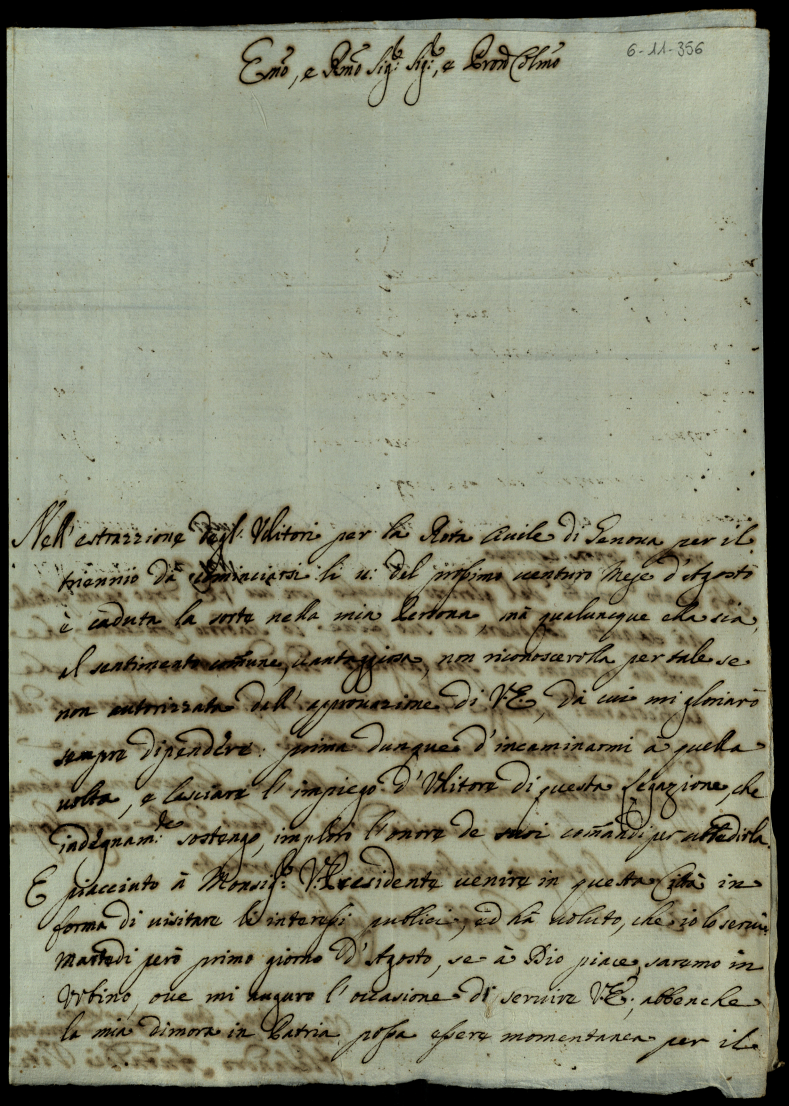 6-11-356
Emo, e Rmo Sigr. Sigr., e Pron Colmo
Nell'estrazzione degl'Uditori per la Rota Civile di Genova per il
triennio dà cominciarsi li u: del prossimo venturo Mese d'Agosto
è caduta la sorte nella mia Persona, mà qualunque ella sia,
il sentimento comune, vantaggiosa, non riconoscerolla per tale se
non autorizzata dall'approvazione di VE, dà cui mi gloriarò
sempre dipendere: prima dunque d'incaminarmi à quella
volta, e lasciare l'impiego d'Uditore di questa Legazione, che
indegnamte. sostengo, imploro l'onore de suoi comandi per ubbedirla.
E piacciuto à Monsigr. V:Presidente venire in questa Città in
forma di visitare li interessi publici, ed hà voluto, che io lo servi:
Martedi però primo giorno d'Agosto, se à Dio piace, saremo in
Urbino, ove mi auguro l'occasione di servire VE, abbenche
la mia dimora in Patria possa essere momentanea per il